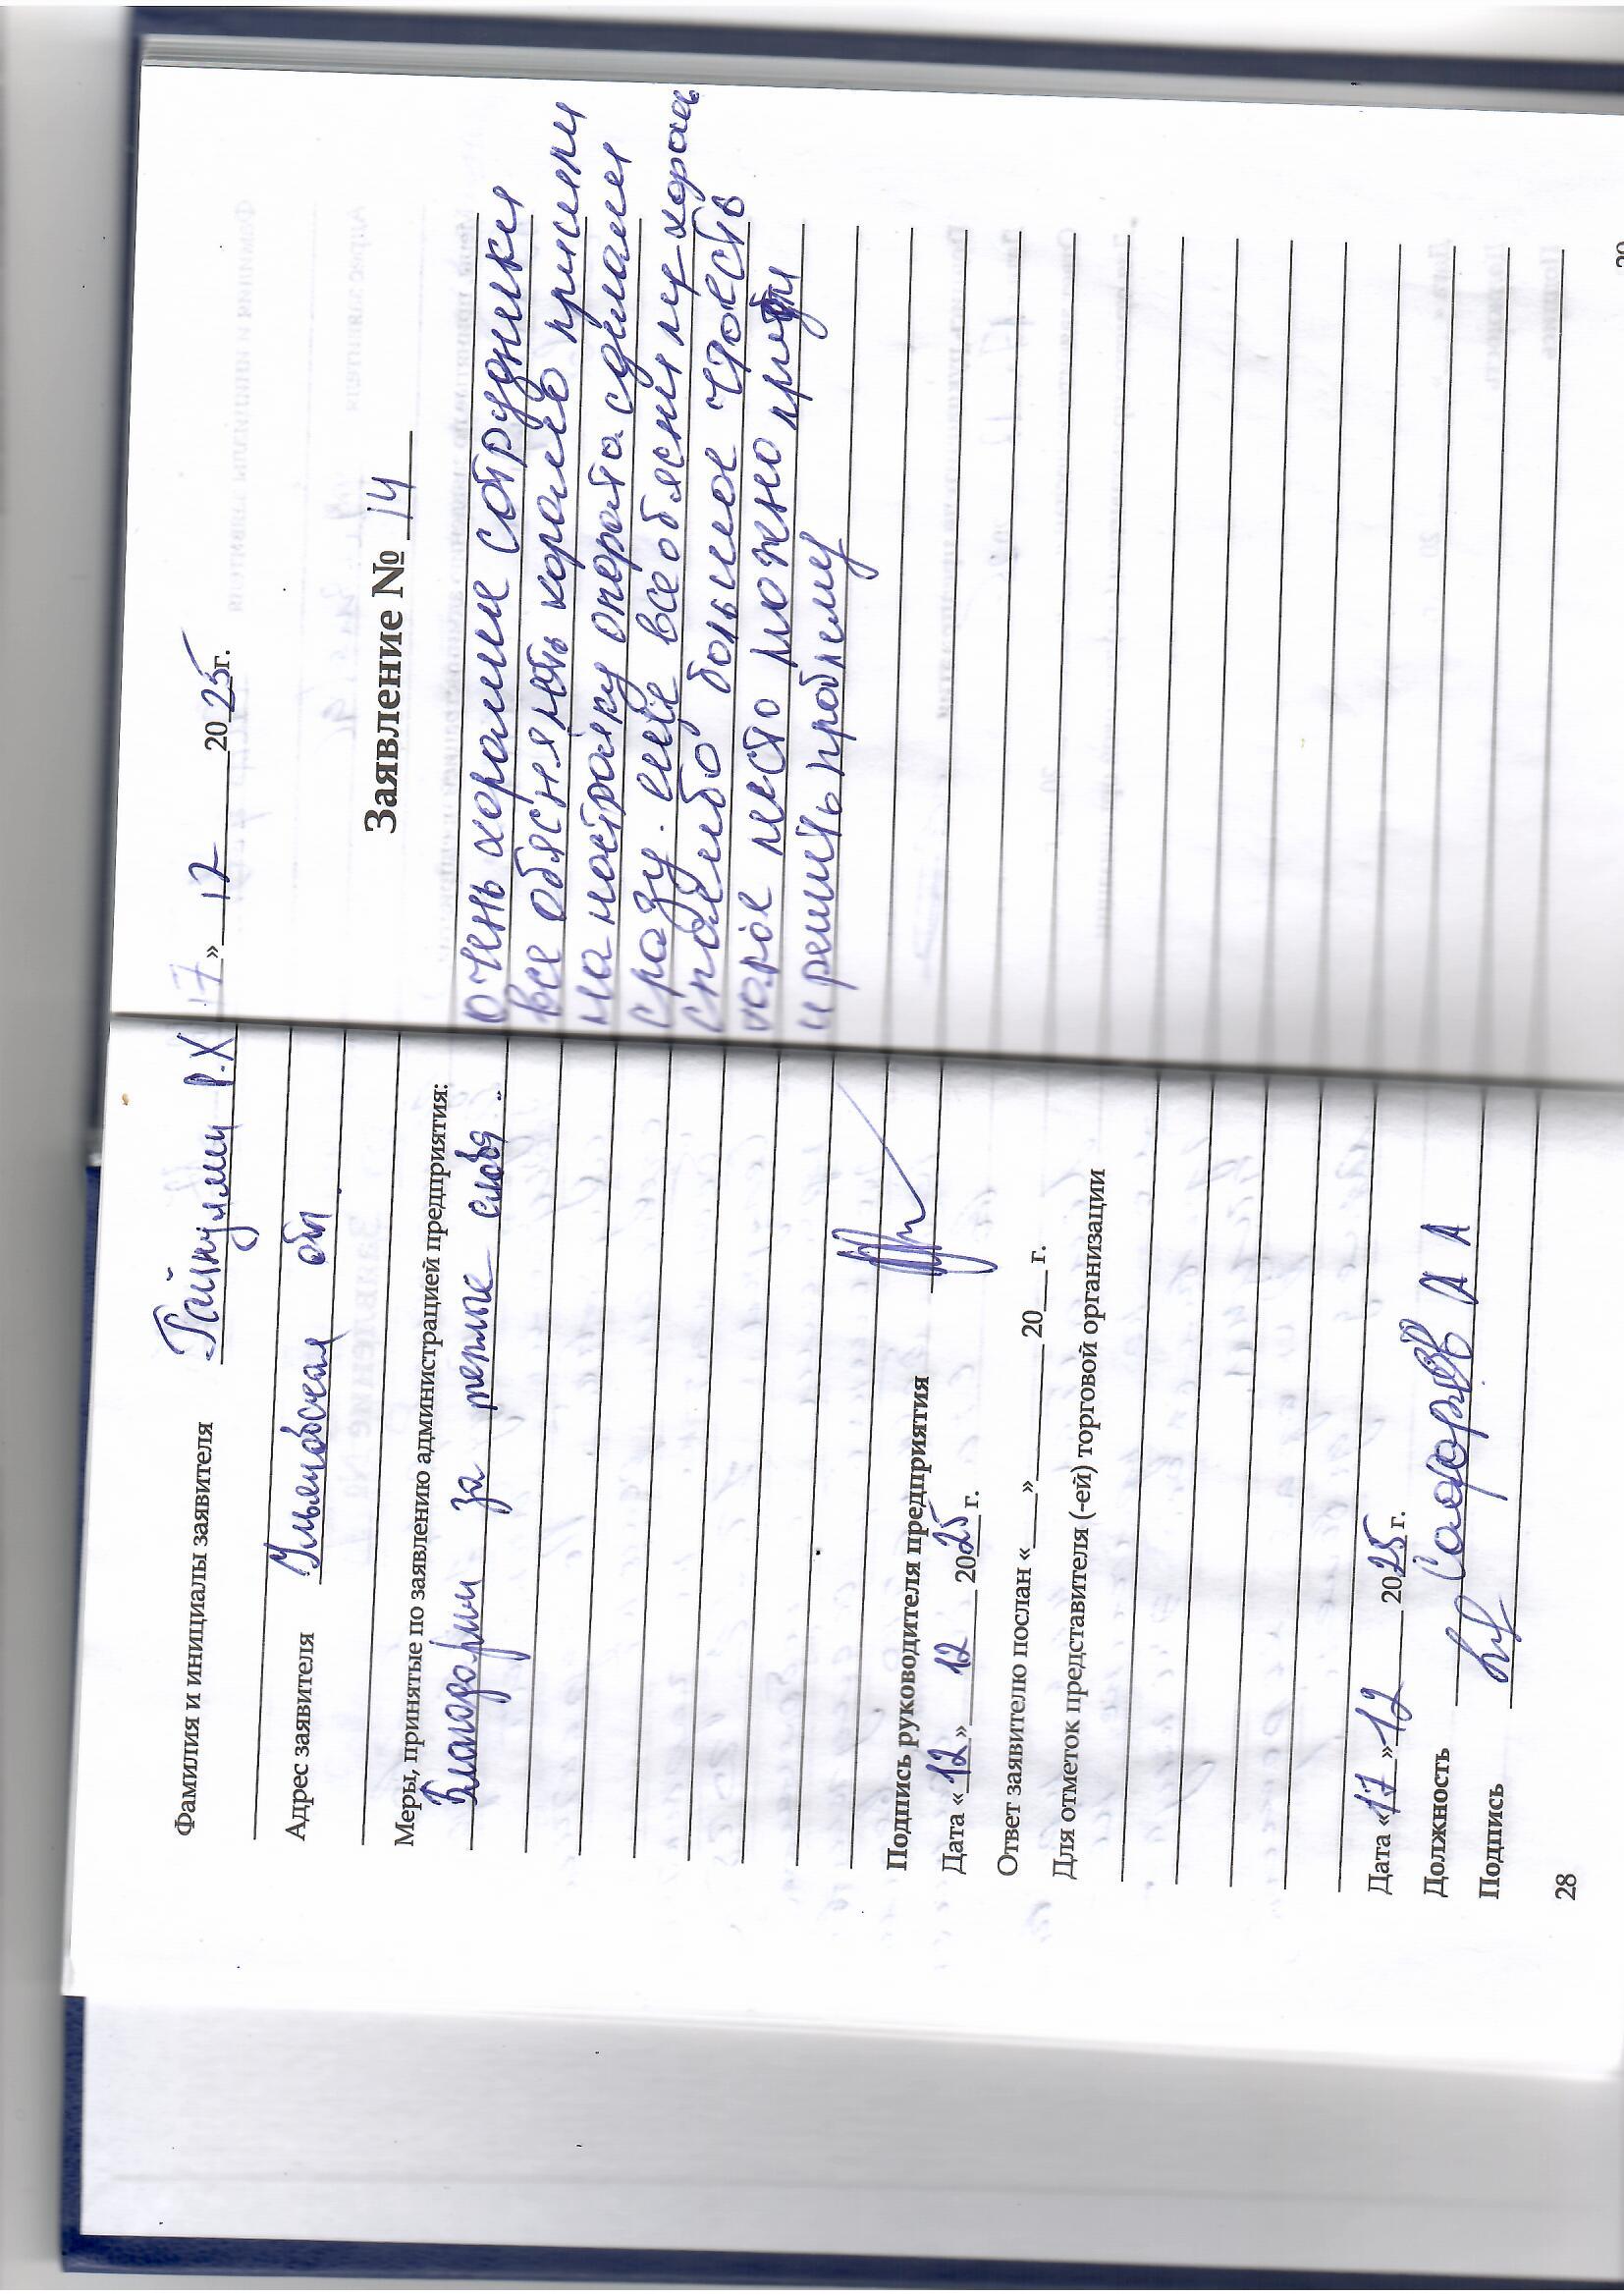 Фамилия и инициалы заявителя Гайнуллин Р.Х
Адрес заявителя Ульяновская обл.
Меры, принятые по заявлению администрацией предприятия:
Благодарим за теплые слова.
Подпись руководителя предприятия
Дата «12» 12 2025 г.
Ответ заявителю послан «__» ______ 20__ г.
Для отметок представителя (-ей) торговой организации
Дата «17» 12 2025 г.
Должность
Подпись
28
17» 12 2025г.
Заявление № 14
очень хорошие сотрудники
все обяснять хорошо пришли
на настройку опората сделали
сразу. еще все обяснили хорош
спасибо большое что есть
такое место можно прийти
и решить проблему
29